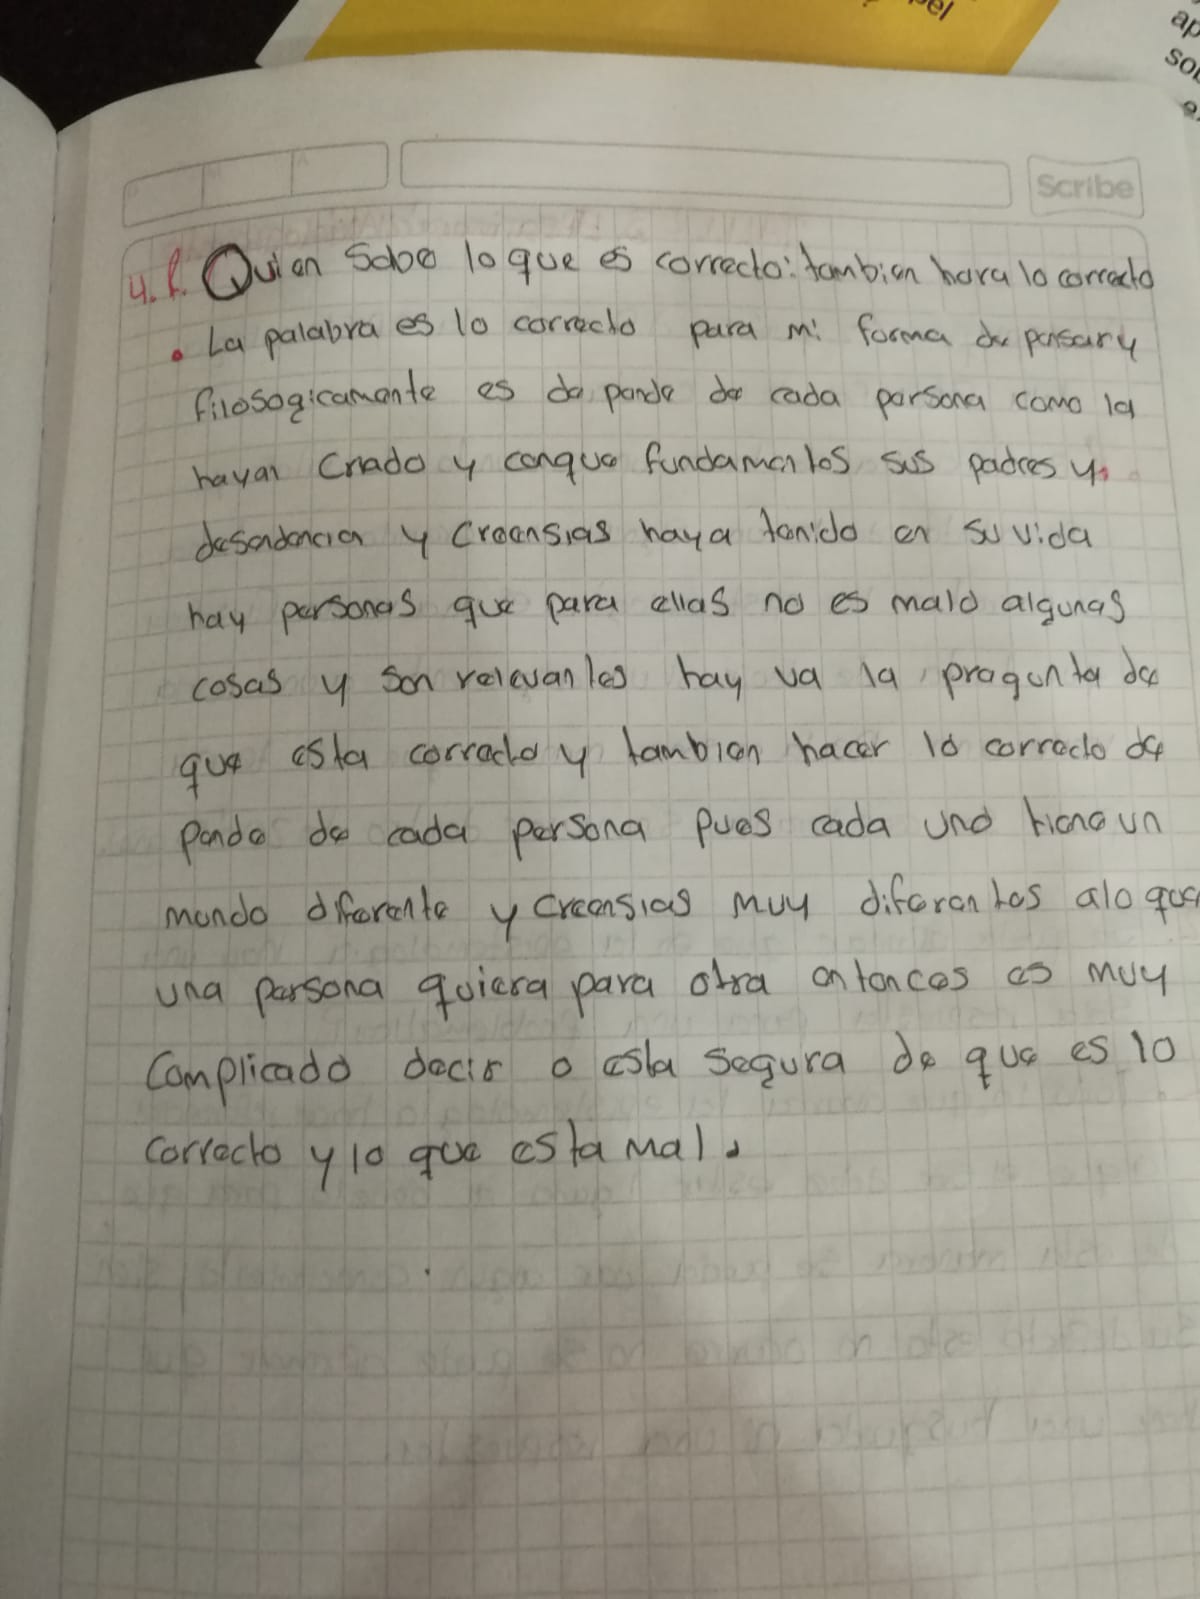 pel
ap
sol
Scribe
4. R. Quien Sabe lo que es correcto: tambien hara lo correcto
. La palabra es lo correcto para mi forma de pensar y
filosogicamente es de pende de cada persona como la
hayan Criado y conque fundamentos sus padres y
desendencia y Creensias haya tenido en su vida
hay personas que para ellas no es malo algunas
cosas y son relevantes hay va la pregunta de
que esta correcto y tambien hacer lo correcto de
pende de cada persona pues cada uno tiene un
mundo diferente y creensias muy diferentes alo que
una persona quiera para otra entonces es muy
Complicado decir o esta segura de que es lo
correcto y lo que esta mal.